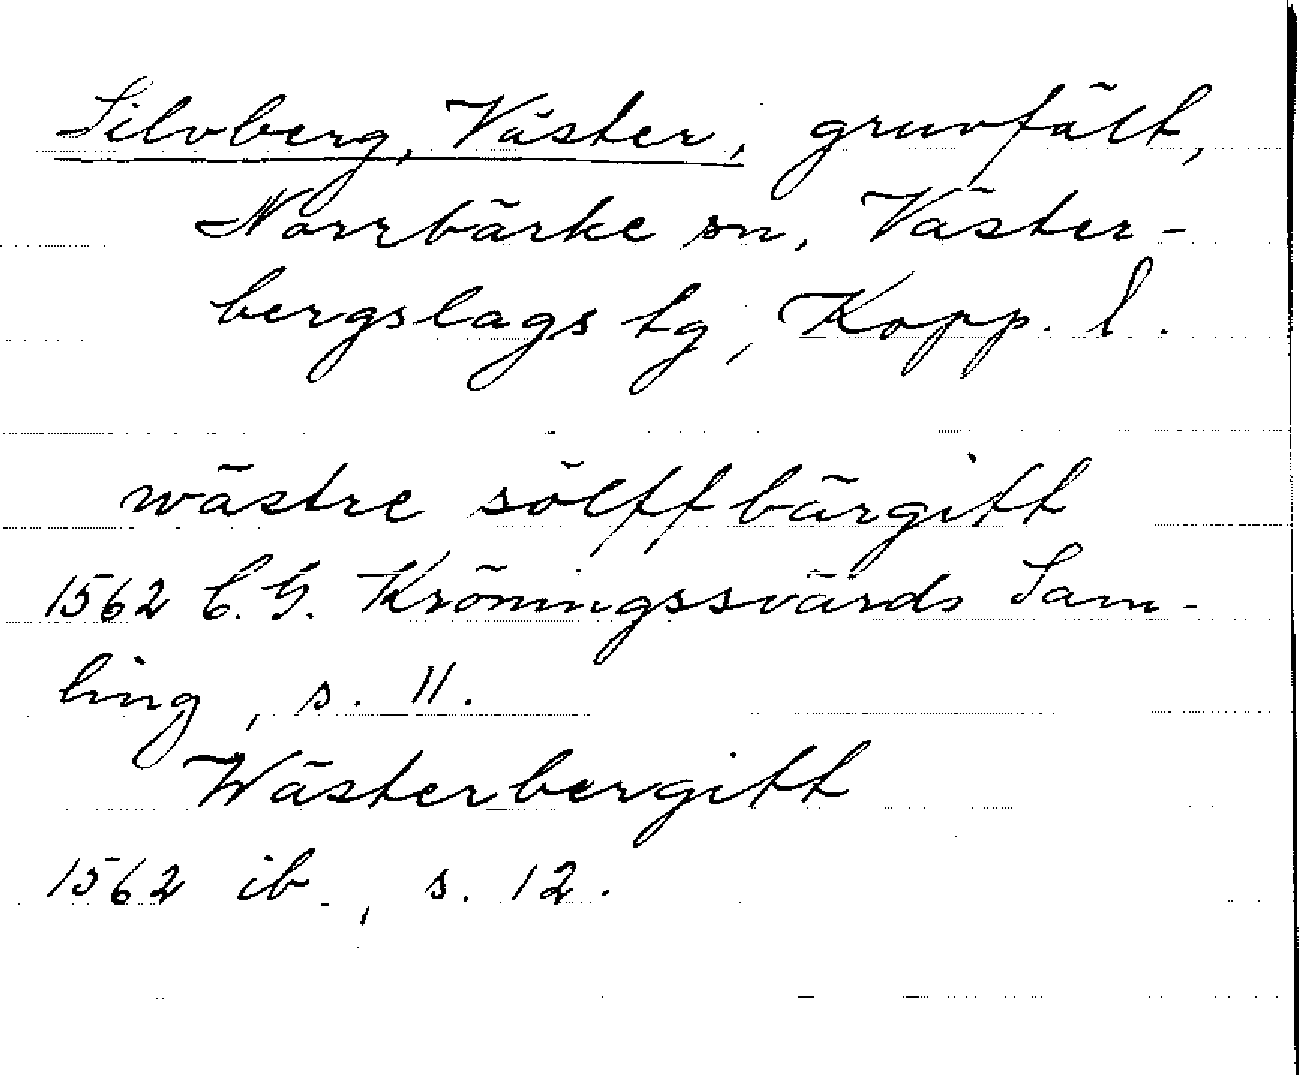 Silvberg, Väster, gruvfält,
Norrbärke sn, Väster-
bergslags tg, Kopp. l.
wästre sölffbärgitt
1562 C.G. Kröningssvärds Sam-
ling, s. 11.
Wästerbergitt
1562 ib., s. 12.